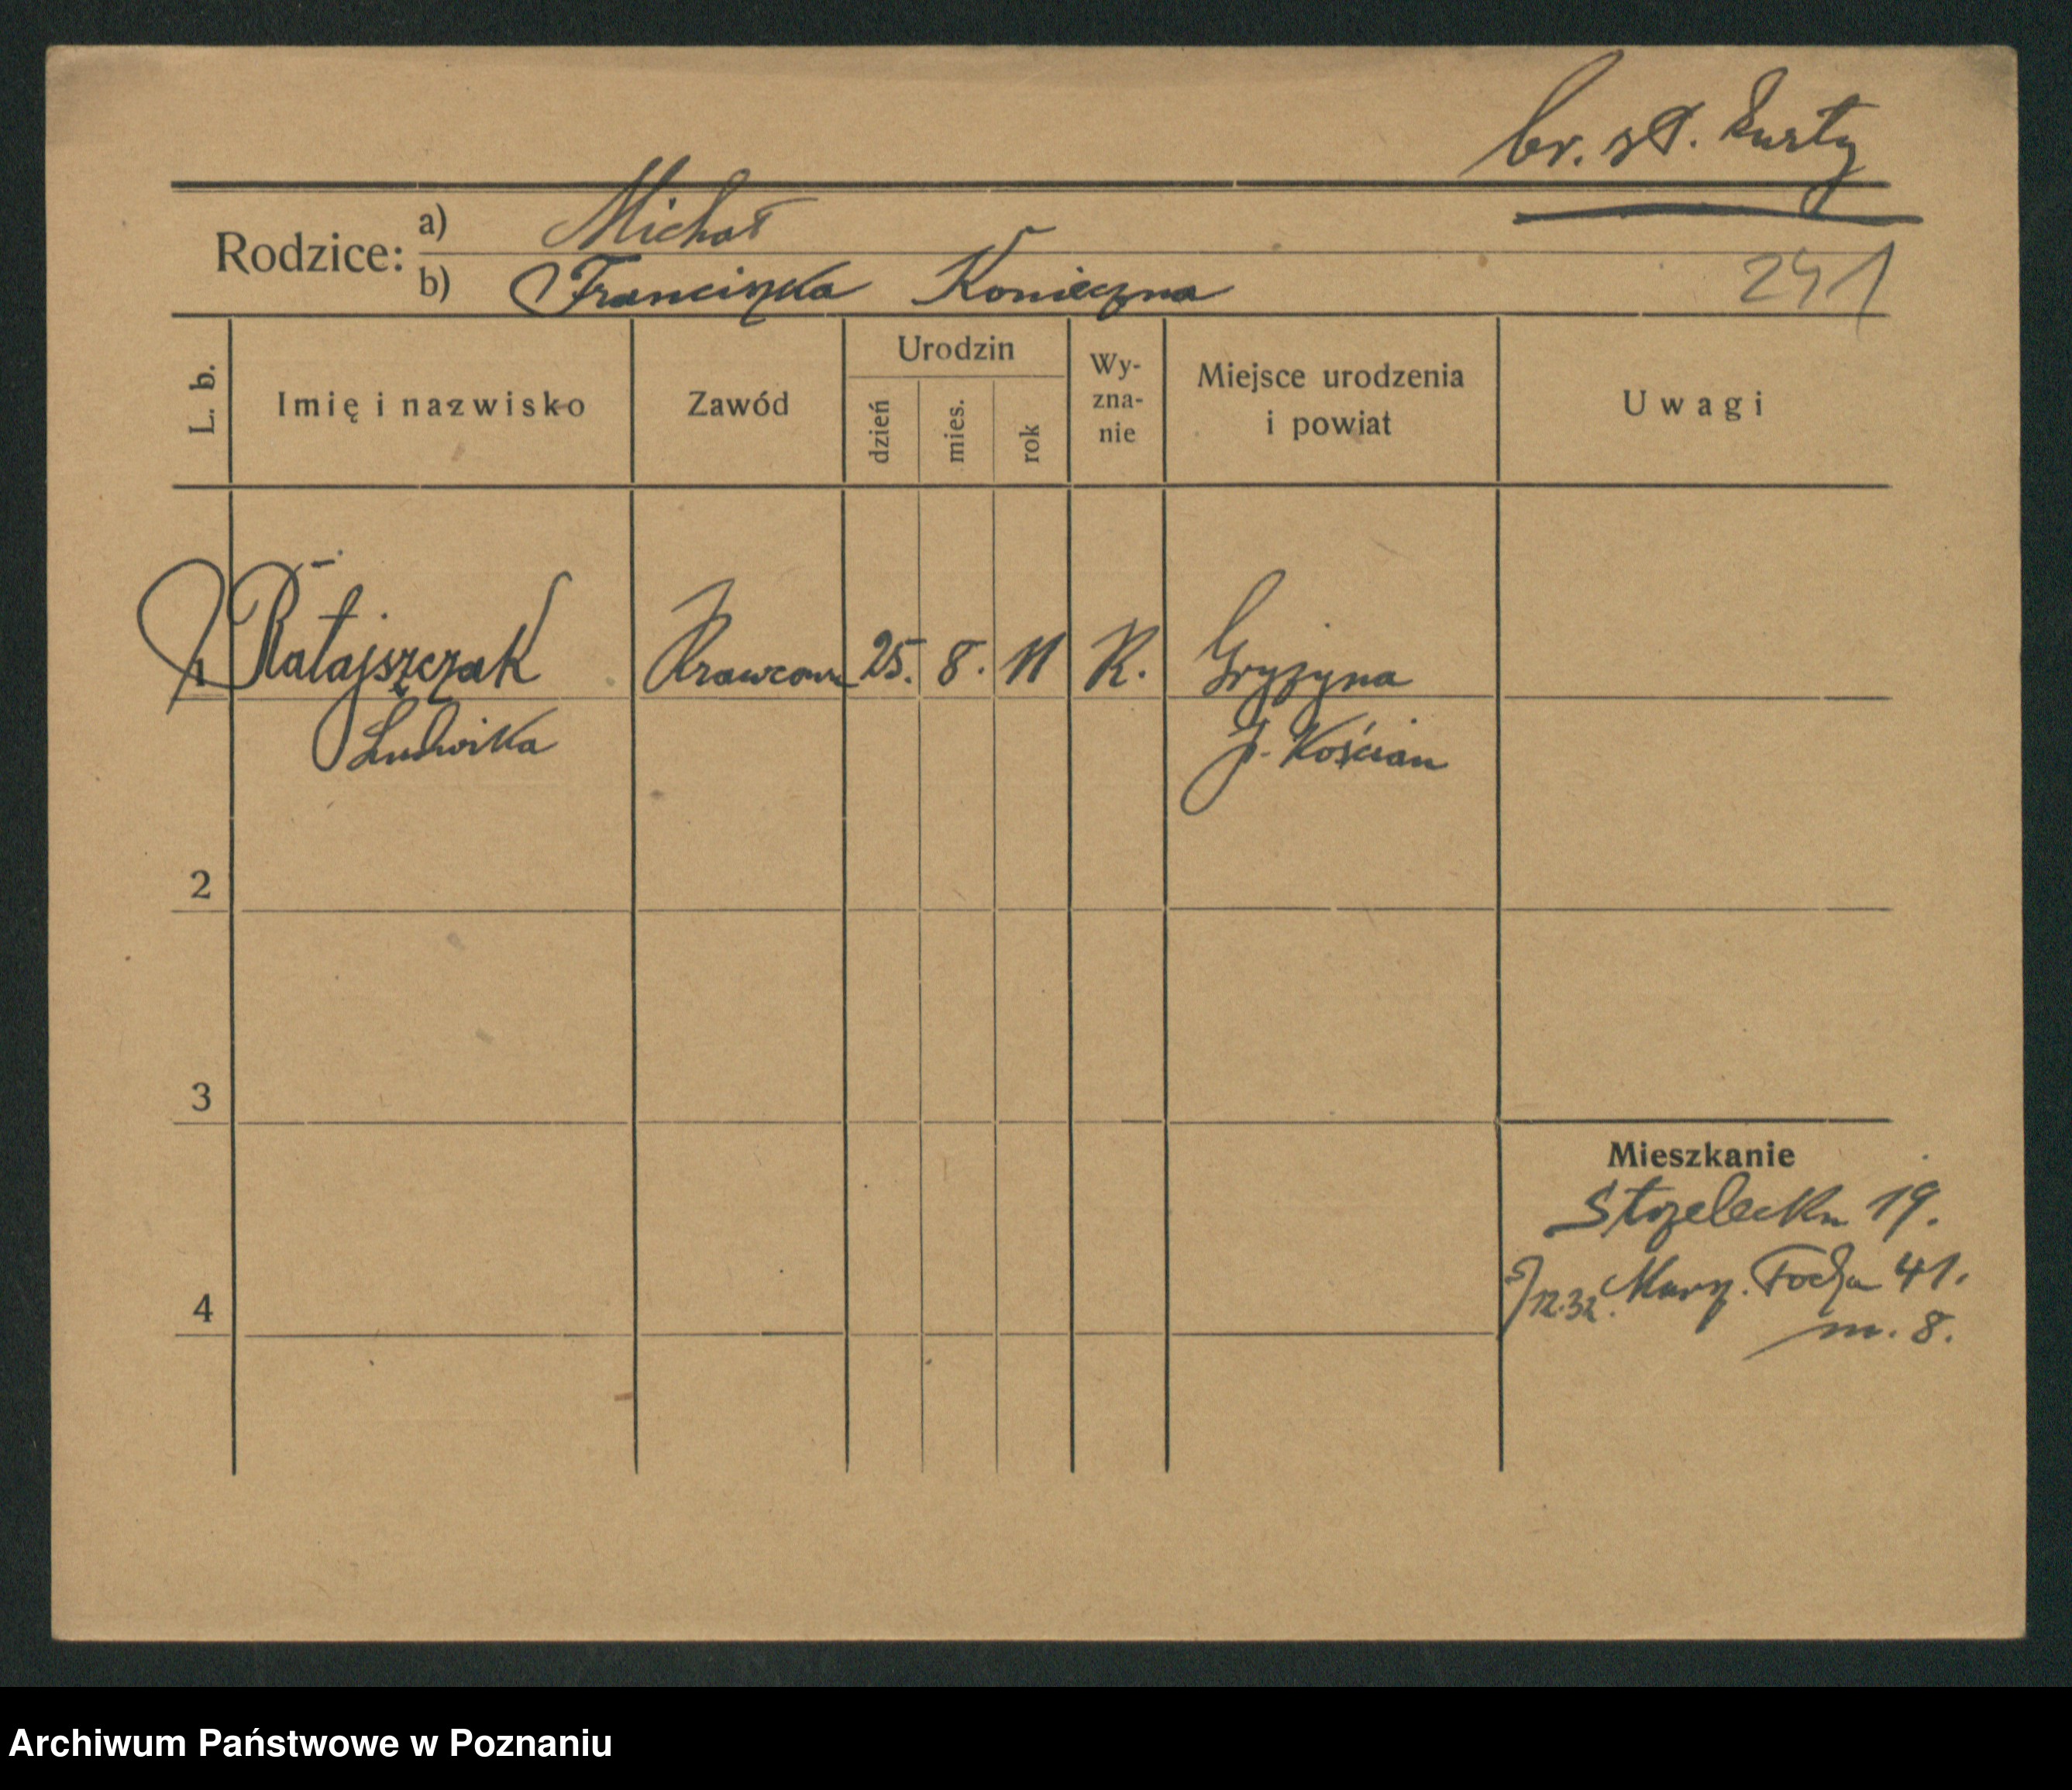 br. st. Kurty
Rodzice: a) Michał
b) Franciszka Konieczna
241
L. b. Imię i nazwisko Zawód Urodzin dzień mies. rok Wy-zna-nie Miejsce urodzenia i powiat Uwagi
1 Ratajszczak Krawcowa 25. 8. 11 R. Gryżyna
Ludwika p. Kościan
2
3
Mieszkanie
Strzelecka 19.
4
5/12.32. Marsz. Focha 41.
m. 8.
Archiwum Państwowe w Poznaniu